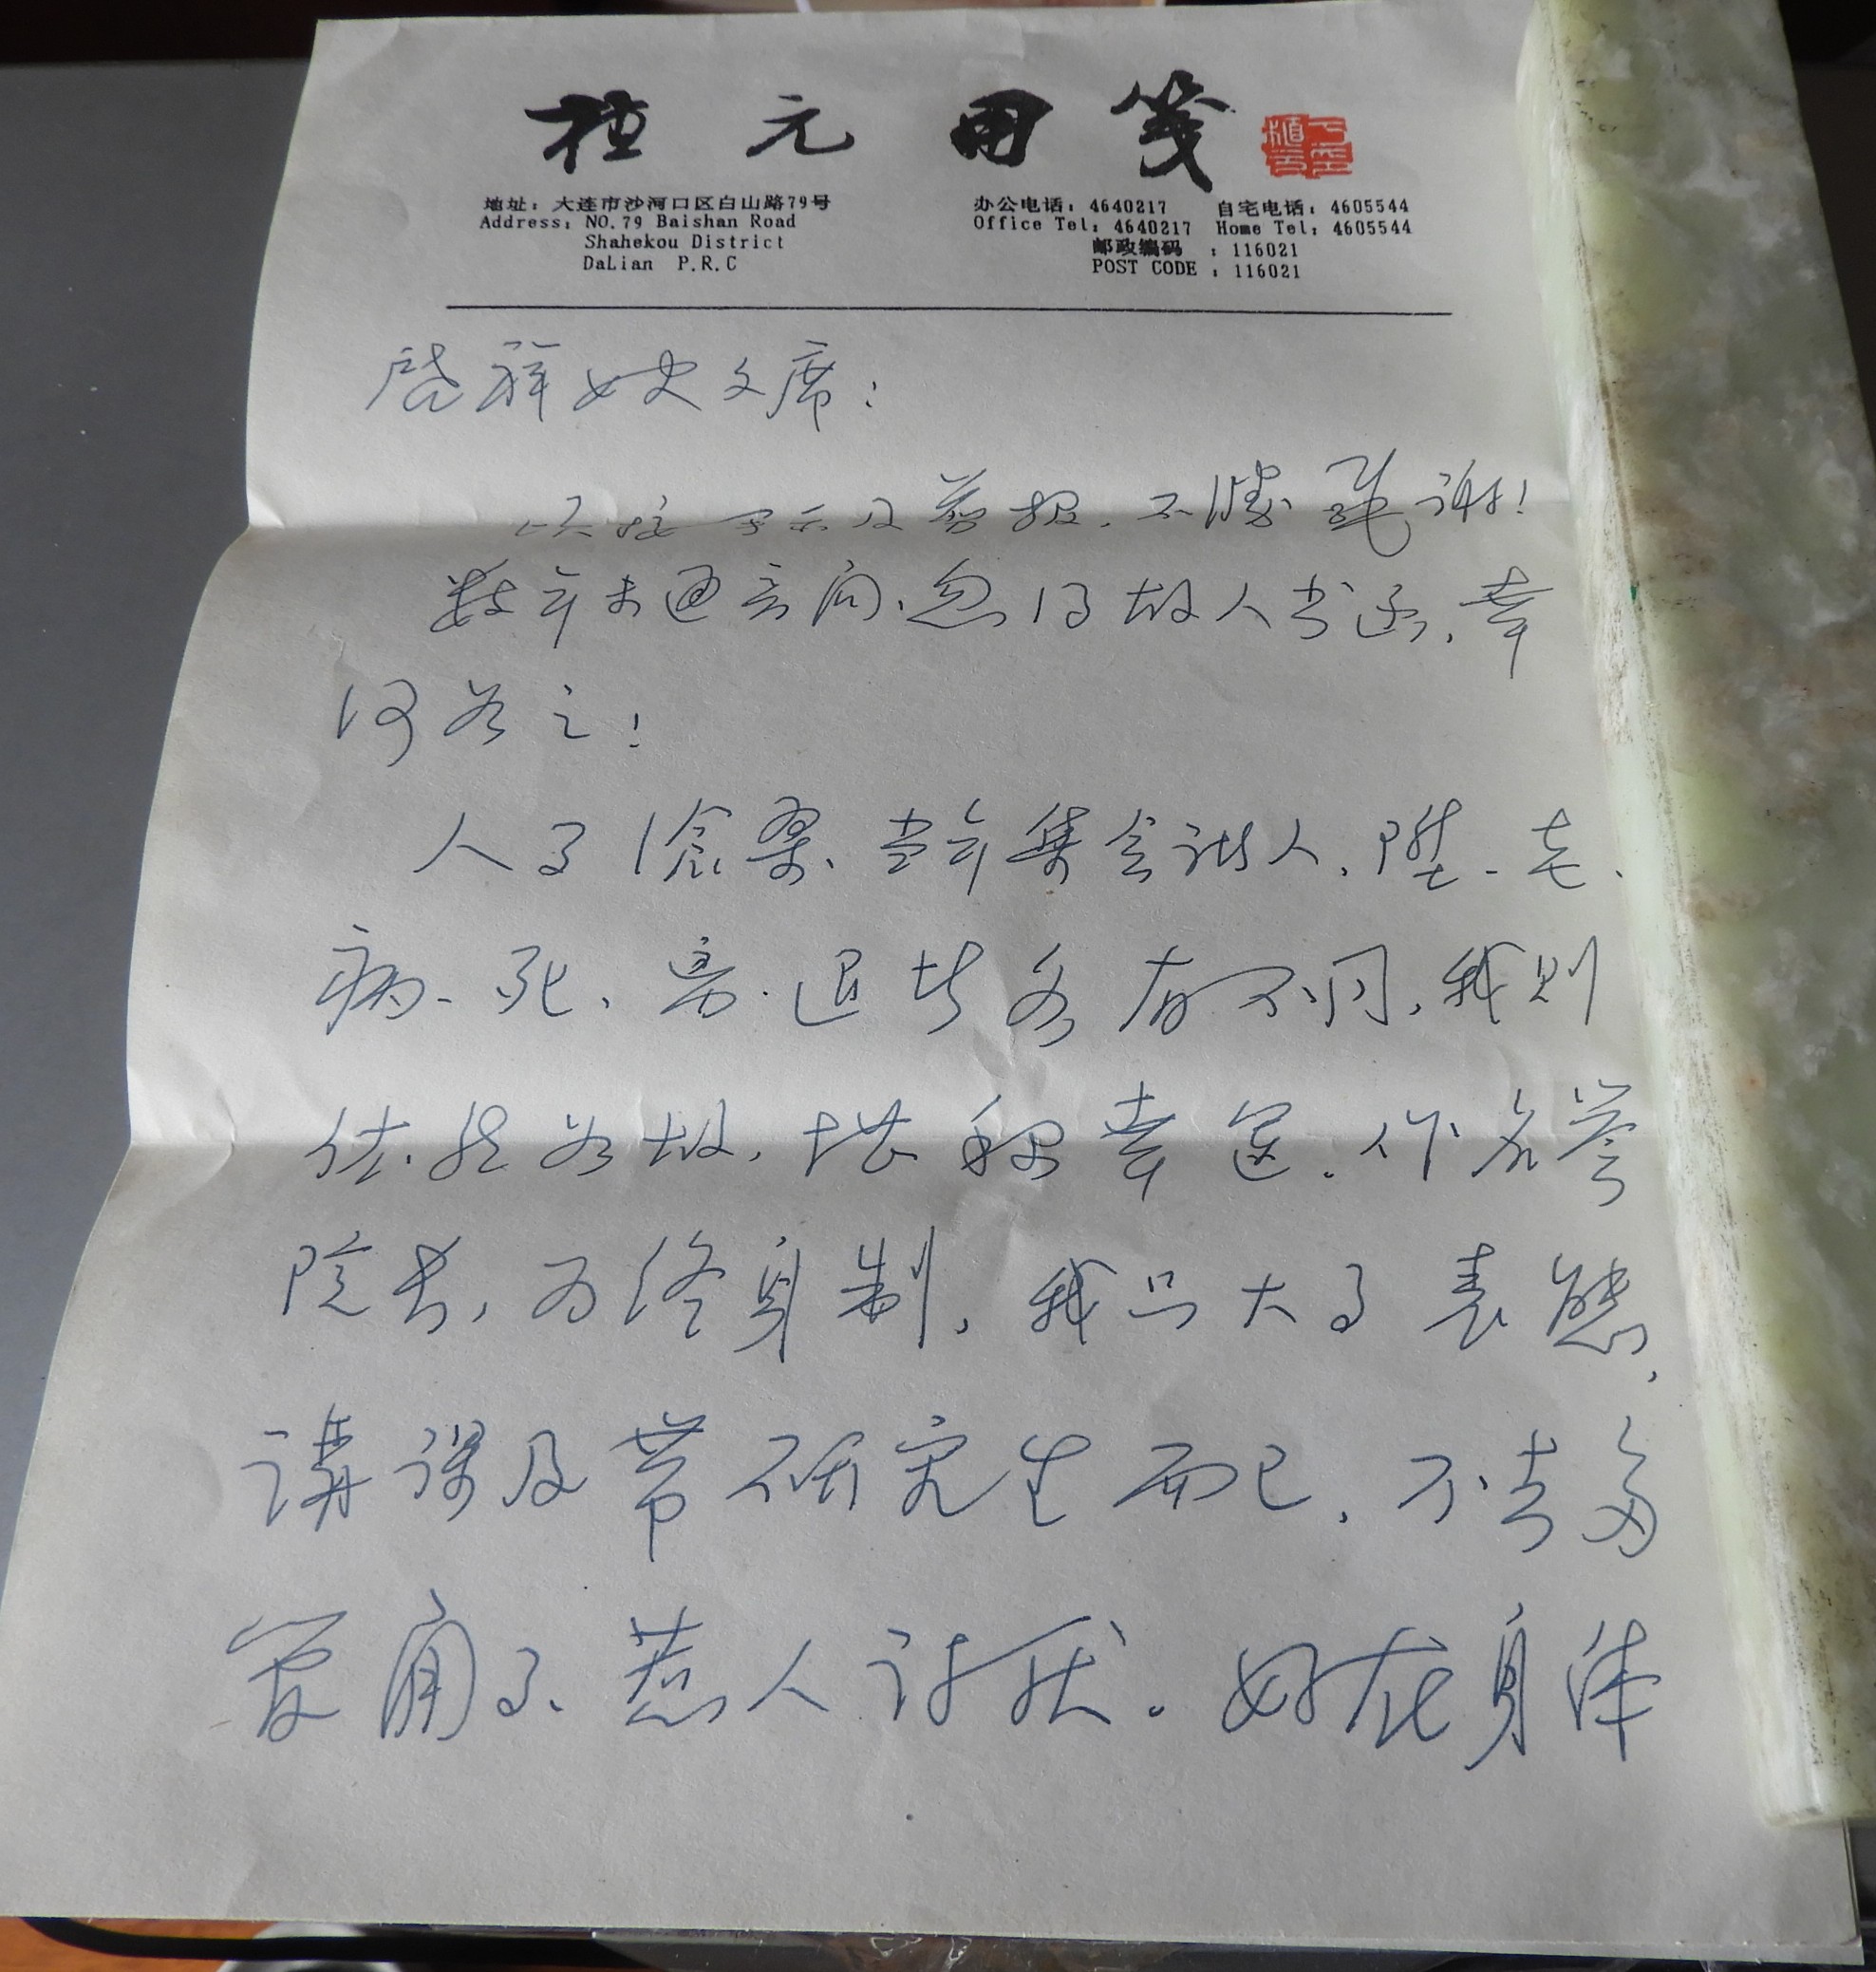 植元用笺
地址：大连市沙河口区白山路79号
Address: NO.79 Baishan Road
Shahekou District
DaLian P.R.C
办公电话：4640217 自宅电话：4605544
Office Tel: 4640217 Home Tel: 4605544
邮政编码：116021
POST CODE：116021
启祥女史文席：
顷接手示及剪报，不胜感谢！
数年未通音问，忽得故人书函，幸
何如之！
人事沧桑，当年集会诸人，升、老、
病、死、离、退皆各有不同，我则
依然如故，堪称幸运。作名誉
院长，为终身制，我只大事表态，
讲课及带研究生而已，不去多
管闲事、惹人讨厌。好在身体